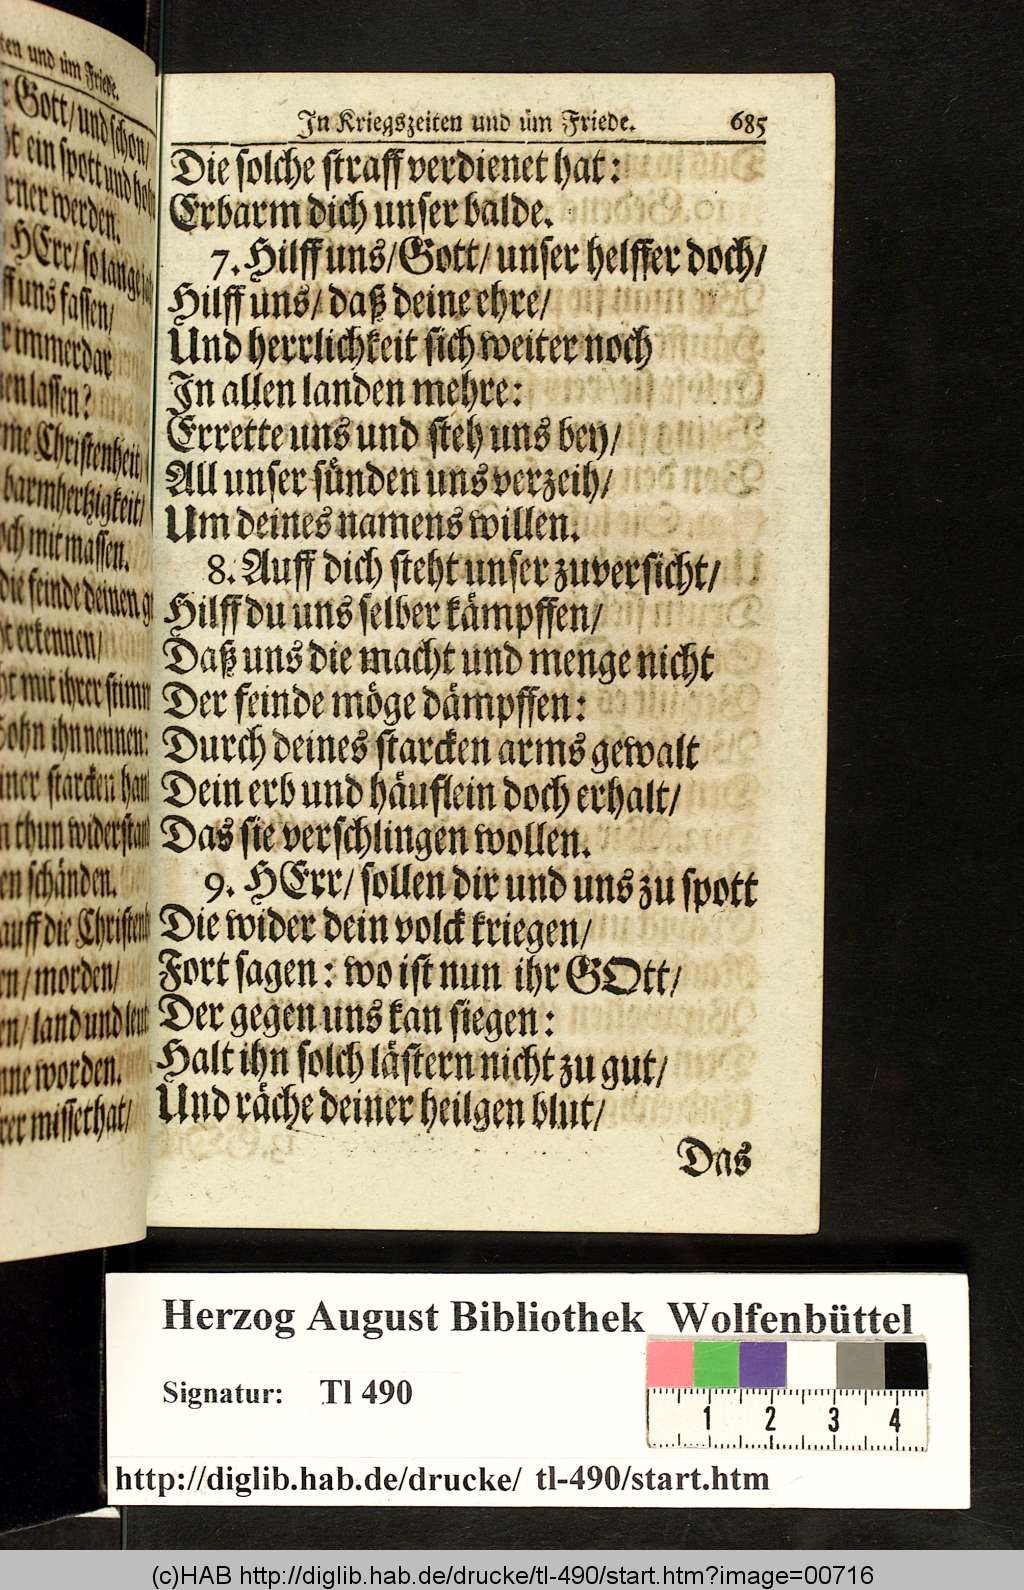 ten und üm Friede.
Gott/ und schon/
ein spott und hohn
rner werden.
HErr/ so lange
ff uns fassen/
r immerdar
en lassen?
me Christenheit/
barmhertzigkeit/
och mit massen.
die feinde deinen
erkennen/
mit ihrer stimm
Sohn ihn nennen:
iner starcken hand
thun widerstand
en schänden.
auff die Christen
en/ morden/
en/ land und leut
nne worden.
rer missethat/
In Kriegszeiten und üm Friede. 685
Die solche straff verdienet hat:
Erbarm dich unser balde.
7. Hilff uns/ Gott/ unser helffer doch/
Hilff uns/ daß deine ehre/
Und herrlichkeit sich weiter noch
In allen landen mehre:
Errette uns und steh uns bey/
All unser sünden uns verzeih/
Um deines namens willen.
8. Auff dich steht unser zuversicht/
Hilff du uns selber kämpffen/
Daß uns die macht und menge nicht
Der feinde möge dämpffen:
Durch deines starcken arms gewalt
Dein erb und häuflein doch erhalt/
Das sie verschlingen wollen.
9. HErr/ sollen dir und uns zu spott
Die wider dein volck kriegen/
Fort sagen: wo ist nun ihr GOtt/
Der gegen uns kan siegen:
Halt ihn solch lästern nicht zu gut/
Und räche deiner heilgen blut/
Das
Herzog August Bibliothek Wolfenbüttel
Signatur: Tl 490
1 2 3 4
http://diglib.hab.de/drucke/ tl-490/start.htm
(c)HAB http://diglib.hab.de/drucke/tl-490/start.htm?image=00716